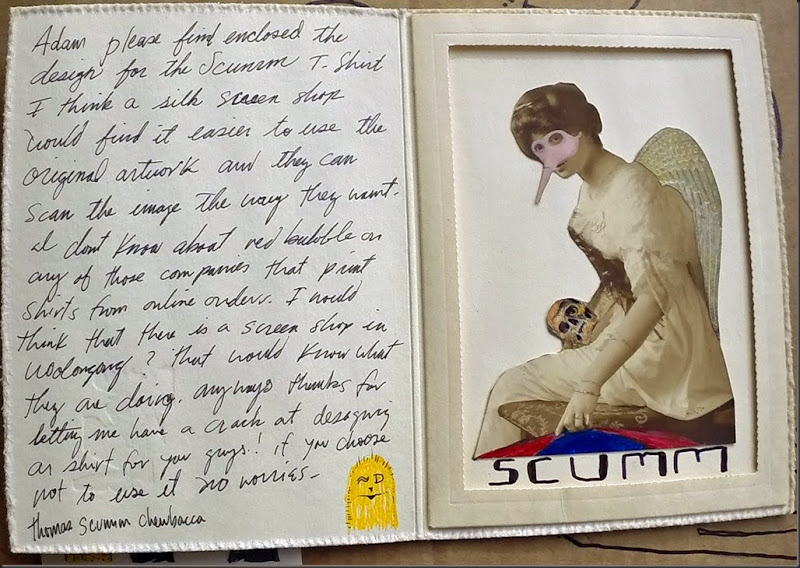 Adam please find enclosed the
design for the Scumm T-Shirt
I think a silk screen shop
would find it easier to use the
original artwork and they can
scan the image the way they want.
I dont know about red bubble or
any of those companies that print
shirts from online orders. I would
think that there is a screen shop in
woolongong? that would know what
they are doing. anyways thanks for
letting me have a crack at designing
an shirt for you guys!! if you choose
not to use it no worries-
thomas Scumm Chewbacca
SCUMM